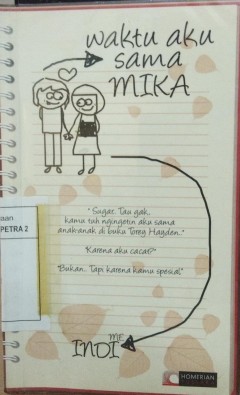 waktu aku
sama
MIKA
" Sugar. Tau gak,
kamu tuh ngingetin aku sama
anak-anak di buku Torey Hayden."
"Karena aku cacat?"
"Bukan. Tapi karena kamu spesial."
PETRA 2
ME
INDI
HOMERIAN